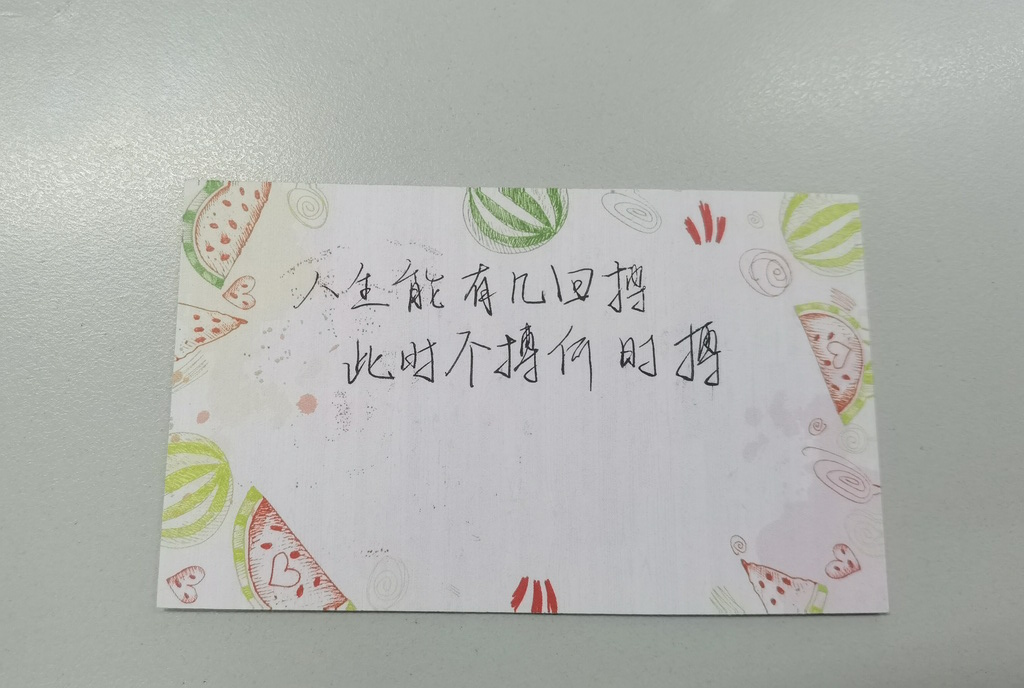 人生能有几回搏
此时不搏何时搏